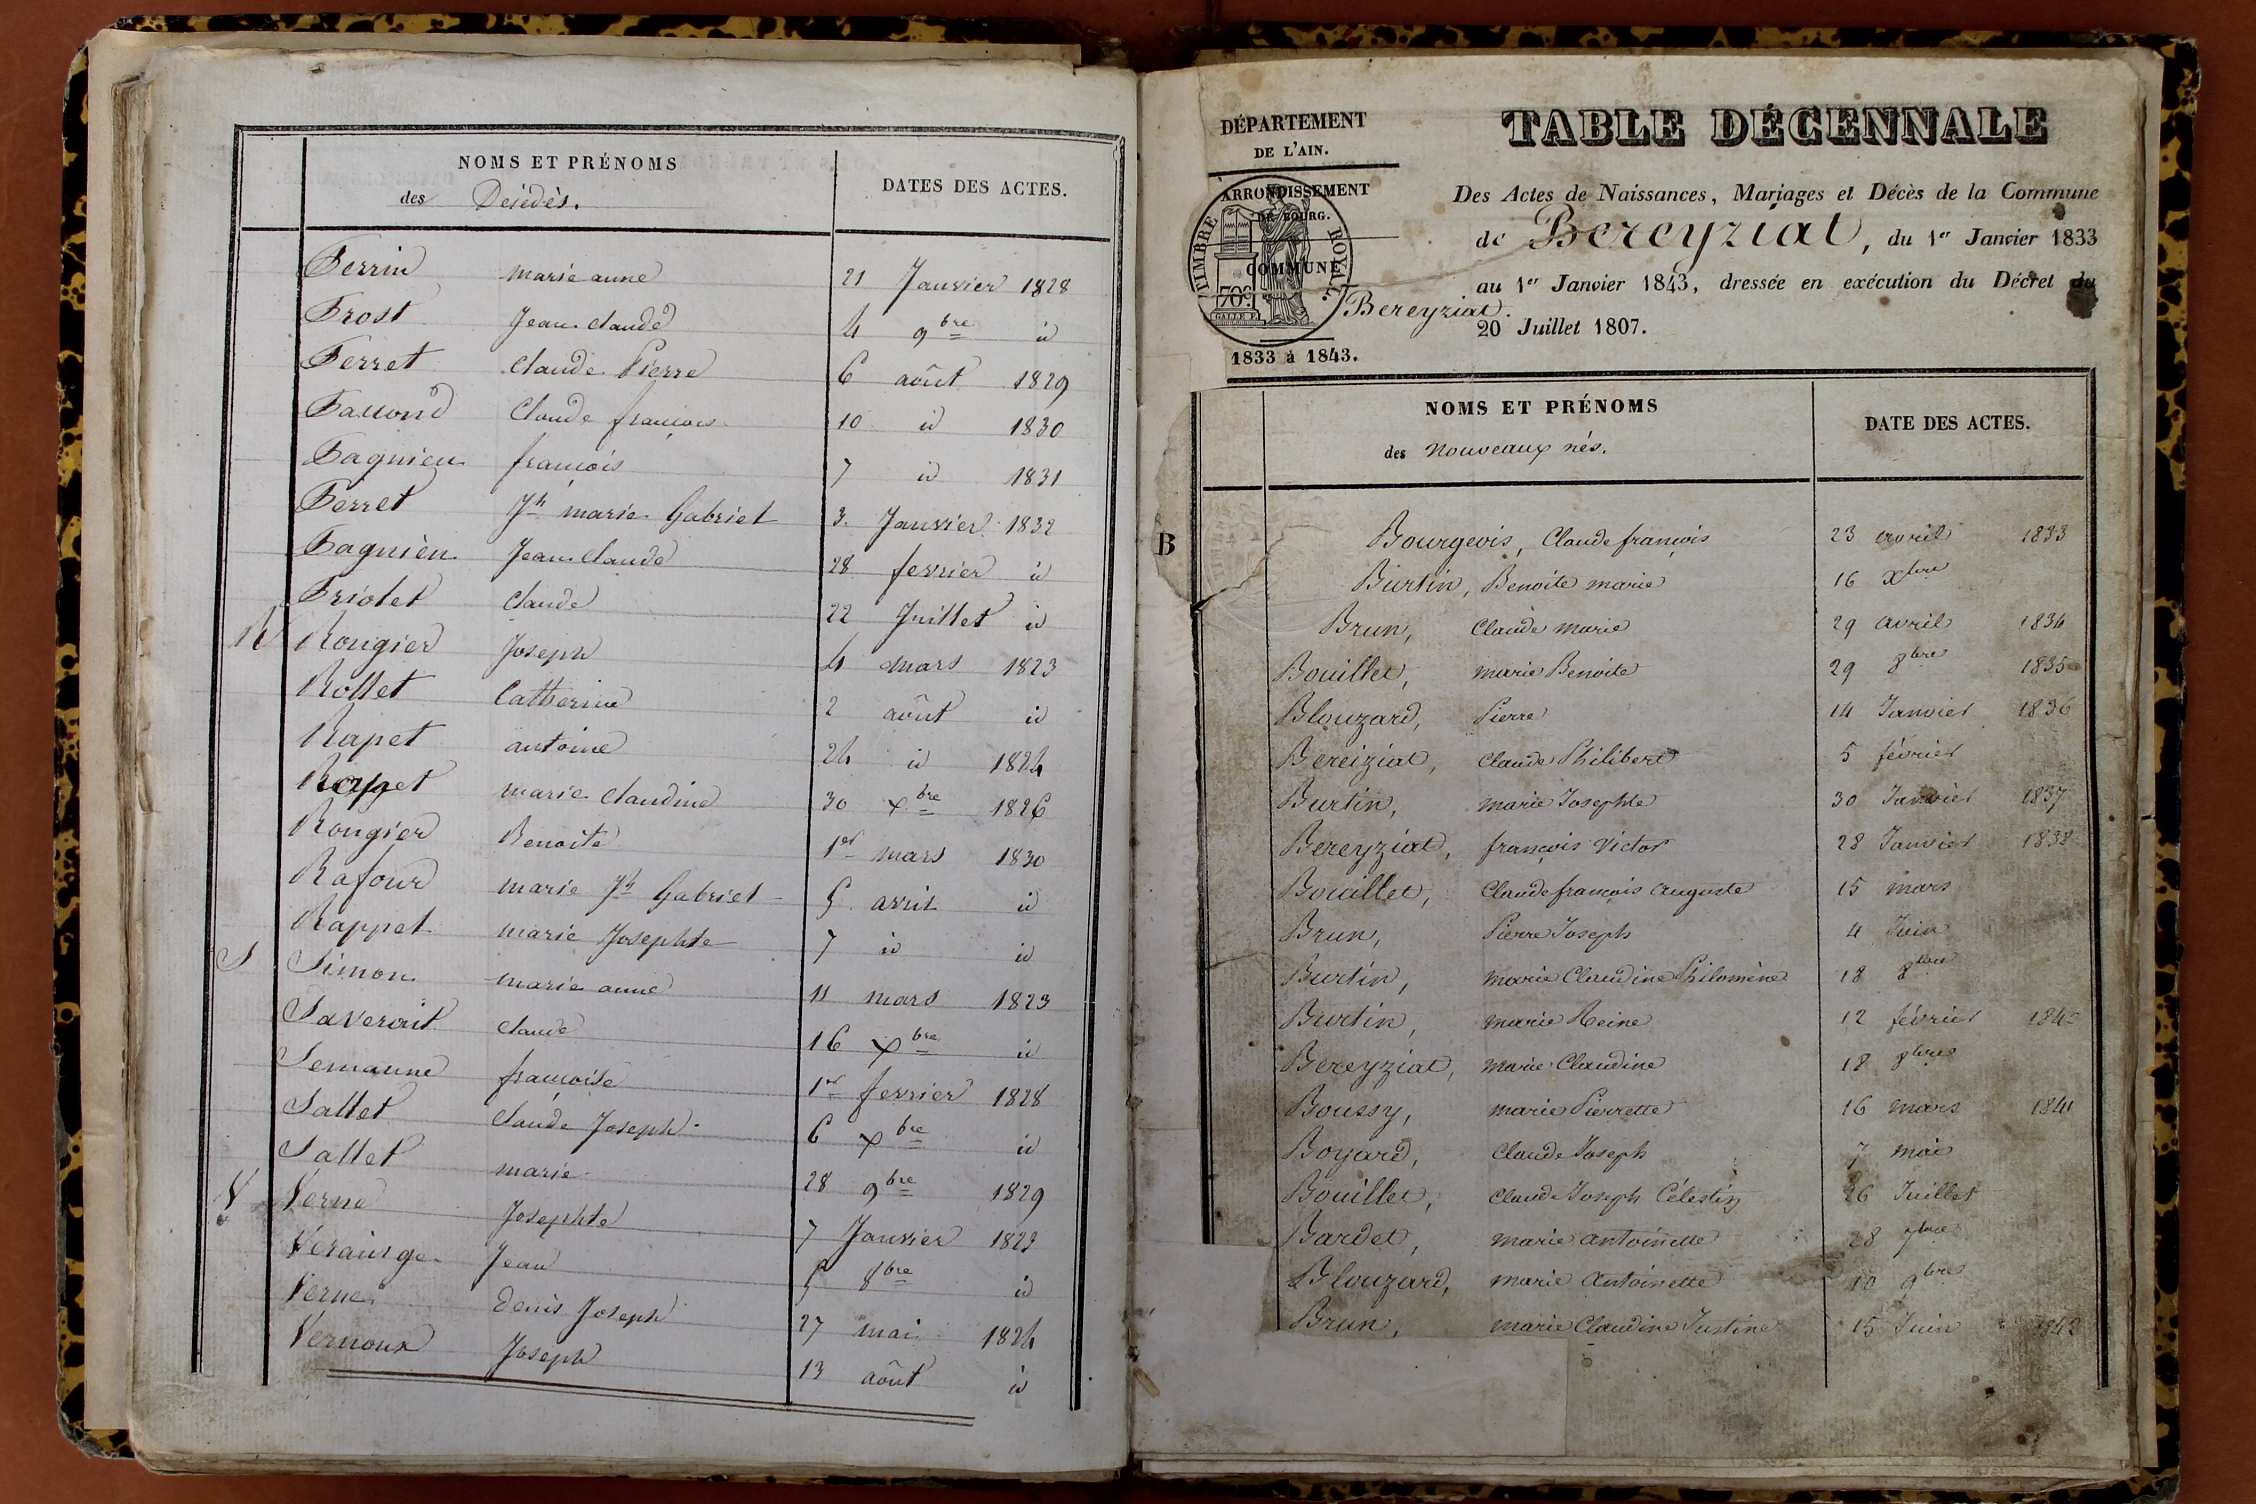 NOMS ET PRÉNOMS
des Décédés.
DATES DES ACTES.
Perrin marie anne 21 Janvier 1828
Prost Jean claude 4 9bre id
Perret Claude Pierre 6 août 1829
Paccoud Claude françois 10 id 1830
Pagnieu françois 7 id 1831
Perret Jh marie Gabriel 3. Janvier 1832
Pagnieu Jean Claude 28 fevrier id
Priolet Claude 22 Juillet id
R Rougier Joseph 4 mars 1823
Rollet Catherine 2 août id
Rapet antoine 24 id 1824
Rapet marie claudine 30 xbre 1826
Rougier Benoite 1er mars 1830
Rafour marie Jh Gabriel 5 avril id
Rappet marie Josephte 7 id id
S Simon marie anne 11 mars 1823
Saverait Claude 16 xbre id
Semanne françoise 1er fevrier 1828
Sallet Claude Joseph 6 xbre id
Sallet marie 28 9bre 1829
V Verne Josephte 7 Janvier 1823
Jean 5 8bre id
Verne denis Joseph 27 mai 1824
Vernoux Joseph 13 août id
DÉPARTEMENT
DE L'AIN.
ARRONDISSEMENT
DE BOURG.
COMMUNE
Bereyziat.
1833 à 1843.
TIMBRE ROYAL
70c.
TABLE DÉCENNALE
Des Actes de Naissances, Mariages et Décès de la Commune
de Bereyziat, du 1er Janvier 1833
au 1er Janvier 1843, dressée en exécution du Décret du
20 Juillet 1807.
NOMS ET PRÉNOMS
des Nouveaux nés.
DATE DES ACTES.
B Bourgeois, Claude françois 23 avril 1833
Burtin, Benoite marie 16 xbre
Brun, Claude marie 29 avril 1834
Bouillet, marie Benoite 29 8bre 1835
Blouzard, Pierre 14 Janvier 1836
Bereiziat, Claude Philibert 5 février
Burtin, marie Josephte 30 Janvier 1837
Bereyziat, françois Victor 28 Janvier 1838
Bouillet, Claude françois auguste 15 mars
Brun, Pierre Joseph 4 Juin
Burtin, marie Claudine Philomène 18 8bre
Burtin, marie Reine 12 février 1840
Bereyziat, marie Claudine 18 8bre
Boussy, marie Pierrette 16 mars 1841
Boyard, Claude Joseph 7 mai
Bouillet, Claude Joseph Célestin 26 Juillet
Bardet, marie antoinette 28
Blouzard, marie Antoinette 10 9bre
Brun, marie Claudine Justine 15 Juin 1842